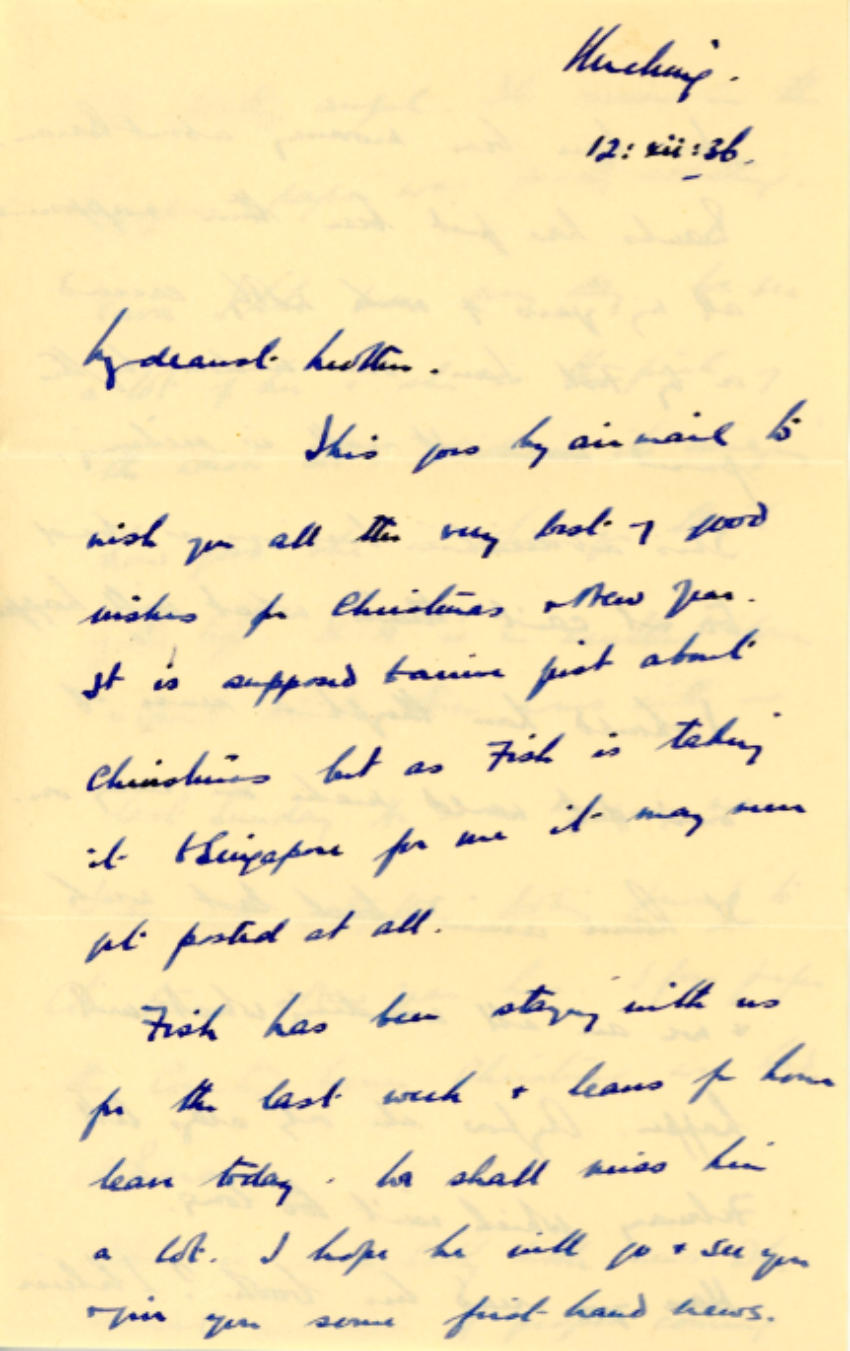 Kuching.
12: xii: 36.
My dearest Mother.
This goes by air mail to
wish you all the very best of good
wishes for Christmas & New Year.
It is supposed to arrive just about
Christmas but as Fish is taking
it to Singapore for me it may never
get posted at all.
Fish has been staying with us
for the last week & leaves for home
leave today. We shall miss him
a lot. I hope he will go & see you
& give you some first-hand news.